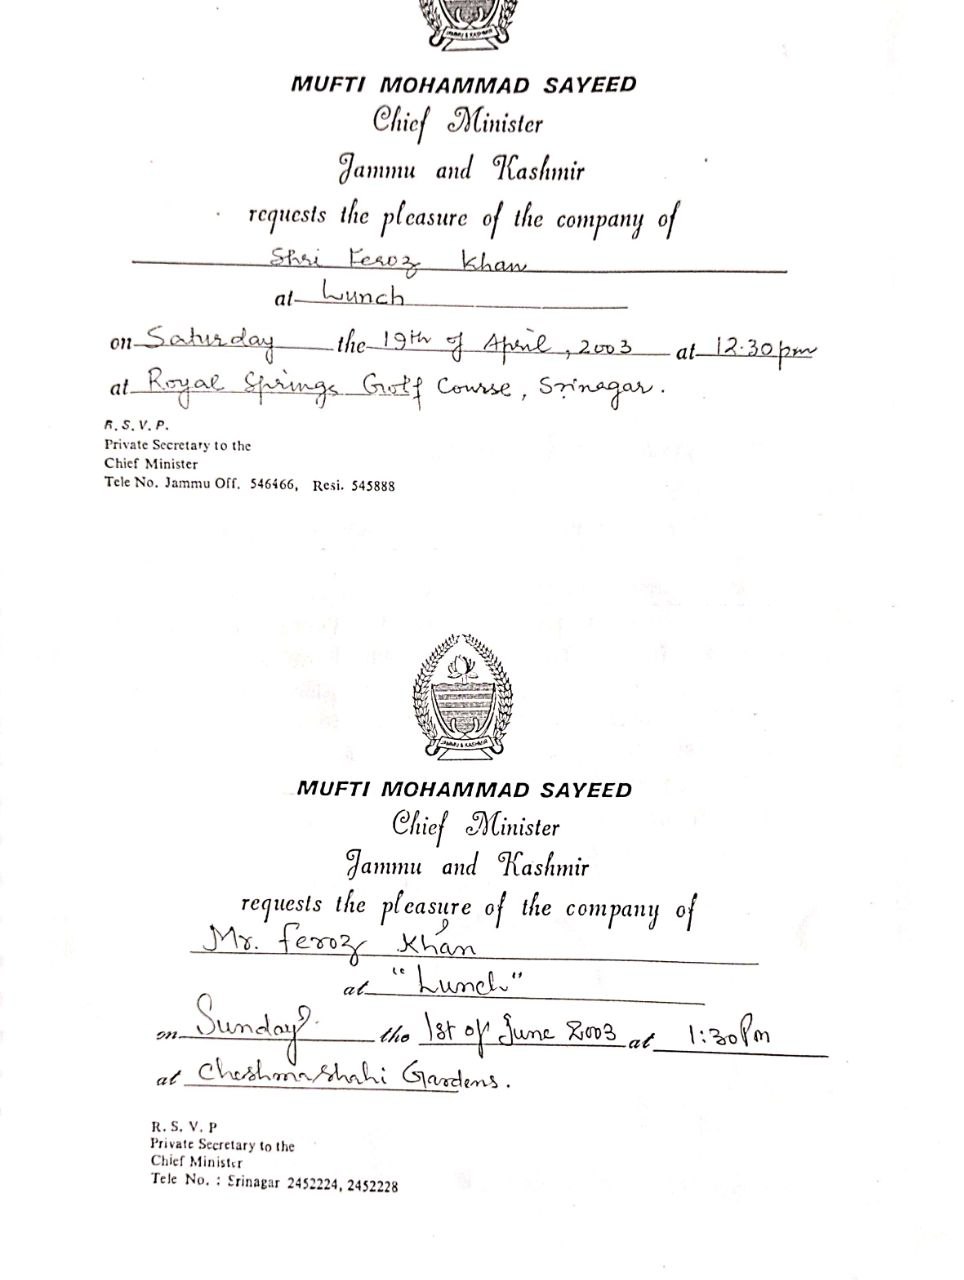 JAMMU & KASHMIR
MUFTI MOHAMMAD SAYEED
Chief Minister
Jammu and Kashmir
requests the pleasure of the company of
Shri Feroz Khan
at Lunch
on Saturday the 19th of April, 2003 at 12.30 pm
at Royal Springs Golf Course, Srinagar.
R. S. V. P.
Private Secretary to the
Chief Minister
Tele No. Jammu Off. 546466, Resi. 545888
JAMMU & KASHMIR
MUFTI MOHAMMAD SAYEED
Chief Minister
Jammu and Kashmir
requests the pleasure of the company of
Mr. Feroz Khan
at "Lunch"
on Sunday the 1st of June 2003 at 1:30 Pm
at Cheshmashahi Gardens.
R. S. V. P
Private Secretary to the
Chief Minister
Tele No. : Srinagar 2452224, 2452228